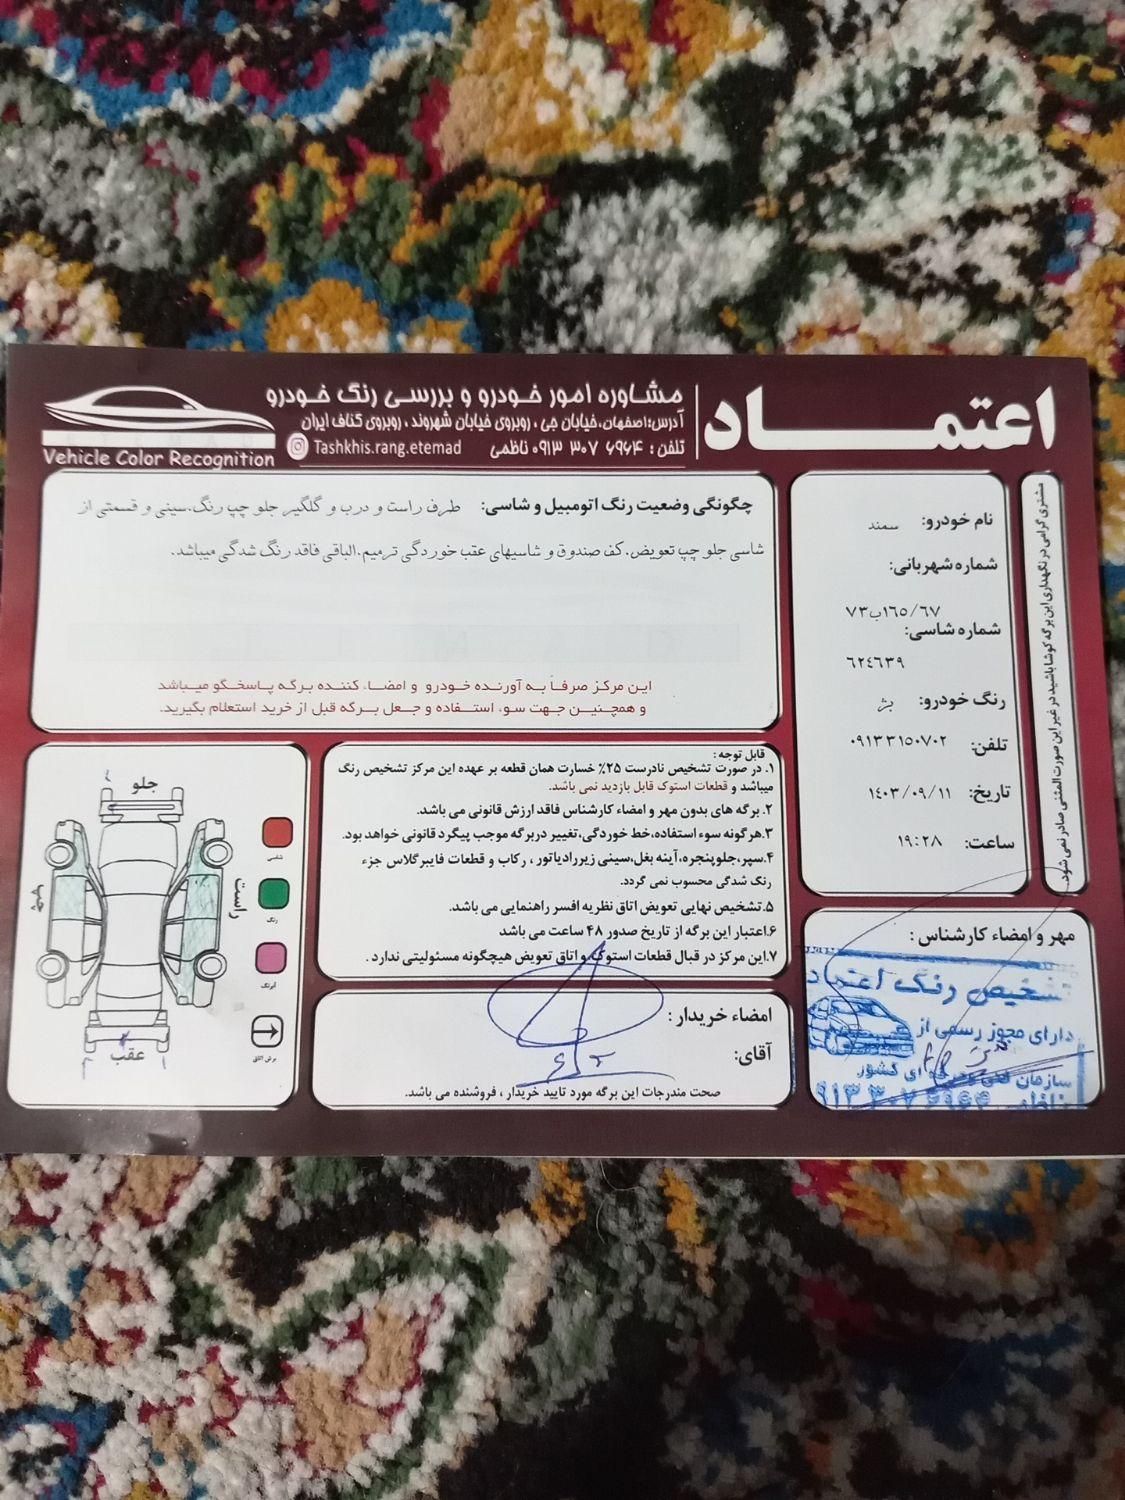 اعتمـــاد
مشاوره امور خودرو و بررسی رنگ خودرو
آدرس:اصفهان،خیابان جی ، روبروی خیابان شهروند ، روبروی کناف ایران
تلفن : ۰۹۱۳ ۳۰۷ ۶۹۶۴ ناظمی
Tashkhis.rang.etemad
Vehicle Color Recognition
مشتری گرامی در نگهداری این برگه کوشا باشید در غیر این صورت المثنی صادر نمی شود.
نام خودرو: سمند
شماره شهربانی:
۷۳ب۱۶۵/۶۷
شماره شاسی:
۶۲۴۶۳۹
رنگ خودرو: بژ
تلفن: ۰۹۱۳۳۱۵۰۷۰۲
تاریخ: ۱۴۰۳/۰۹/۱۱
ساعت: ۱۹:۲۸
چگونگی وضعیت رنگ اتومبیل و شاسی: طرف راست و درب و گلگیر جلو چپ رنگ.سینی و قسمتی از
شاسی جلو چپ تعویض.کف صندوق و شاسیهای عقب خوردگی ترمیم.الباقی فاقد رنگ شدگی میباشد.
این مرکز صرفاً به آورنده خودرو و امضاء کننده برگه پاسخگو میباشد
و همچنین جهت سوء استفاده و جعل برگه قبل از خرید استعلام بگیرید.
قابل توجه :
۱. در صورت تشخیص نادرست ۲۵٪ خسارت همان قطعه بر عهده این مرکز تشخیص رنگ
میباشد و قطعات استوک قابل بازدید نمی باشد.
۲. برگه های بدون مهر و امضاء کارشناس فاقد ارزش قانونی می باشد.
۳.هرگونه سوء استفاده،خط خوردگی،تغییر دربرگه موجب پیگرد قانونی خواهد بود.
۴.سپر،جلوپنجره،آینه بغل،سینی زیررادیاتور ، رکاب و قطعات فایبرگلاس جزء
رنگ شدگی محسوب نمی گردد.
۵.تشخیص نهایی تعویض اتاق نظریه افسر راهنمایی می باشد.
۶.اعتبار این برگه از تاریخ صدور ۴۸ ساعت می باشد
۷.این مرکز در قبال قطعات استوک و اتاق تعویض هیچگونه مسئولیتی ندارد .
امضاء خریدار :
آقای:
صحت مندرجات این برگه مورد تایید خریدار ، فروشنده می باشد.
مهر و امضاء کارشناس :
تشخیص رنگ اعتماد
دارای مجوز رسمی از
سازمان فنی و حرفه ای کشور
ناظمی ۰۹۱۳ ۳۰۷ ۶۹۶۴
جلو
راست
چپ
عقب
شاسی
رنگ
آبرنگ
برش اتاق